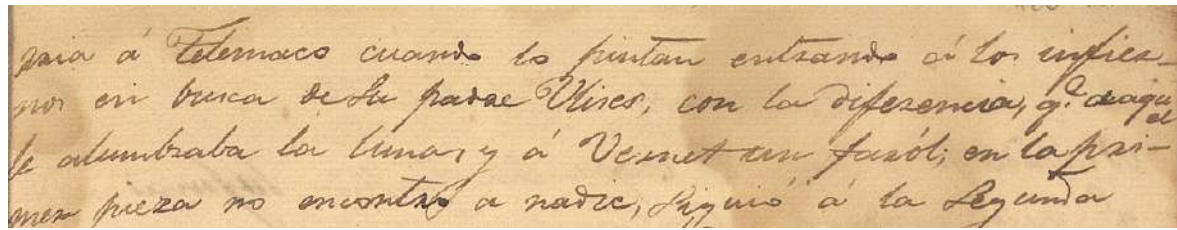 xaia á Telemaco cuando lo pintan entrando á los infier-
nos en busca de su padre Ulises, con la diferencia, q.e á aquel
le alumbraba la luna, y á Vernet un faról; en la pri-
mera pieza no encontró a nadie, siguió á la segunda